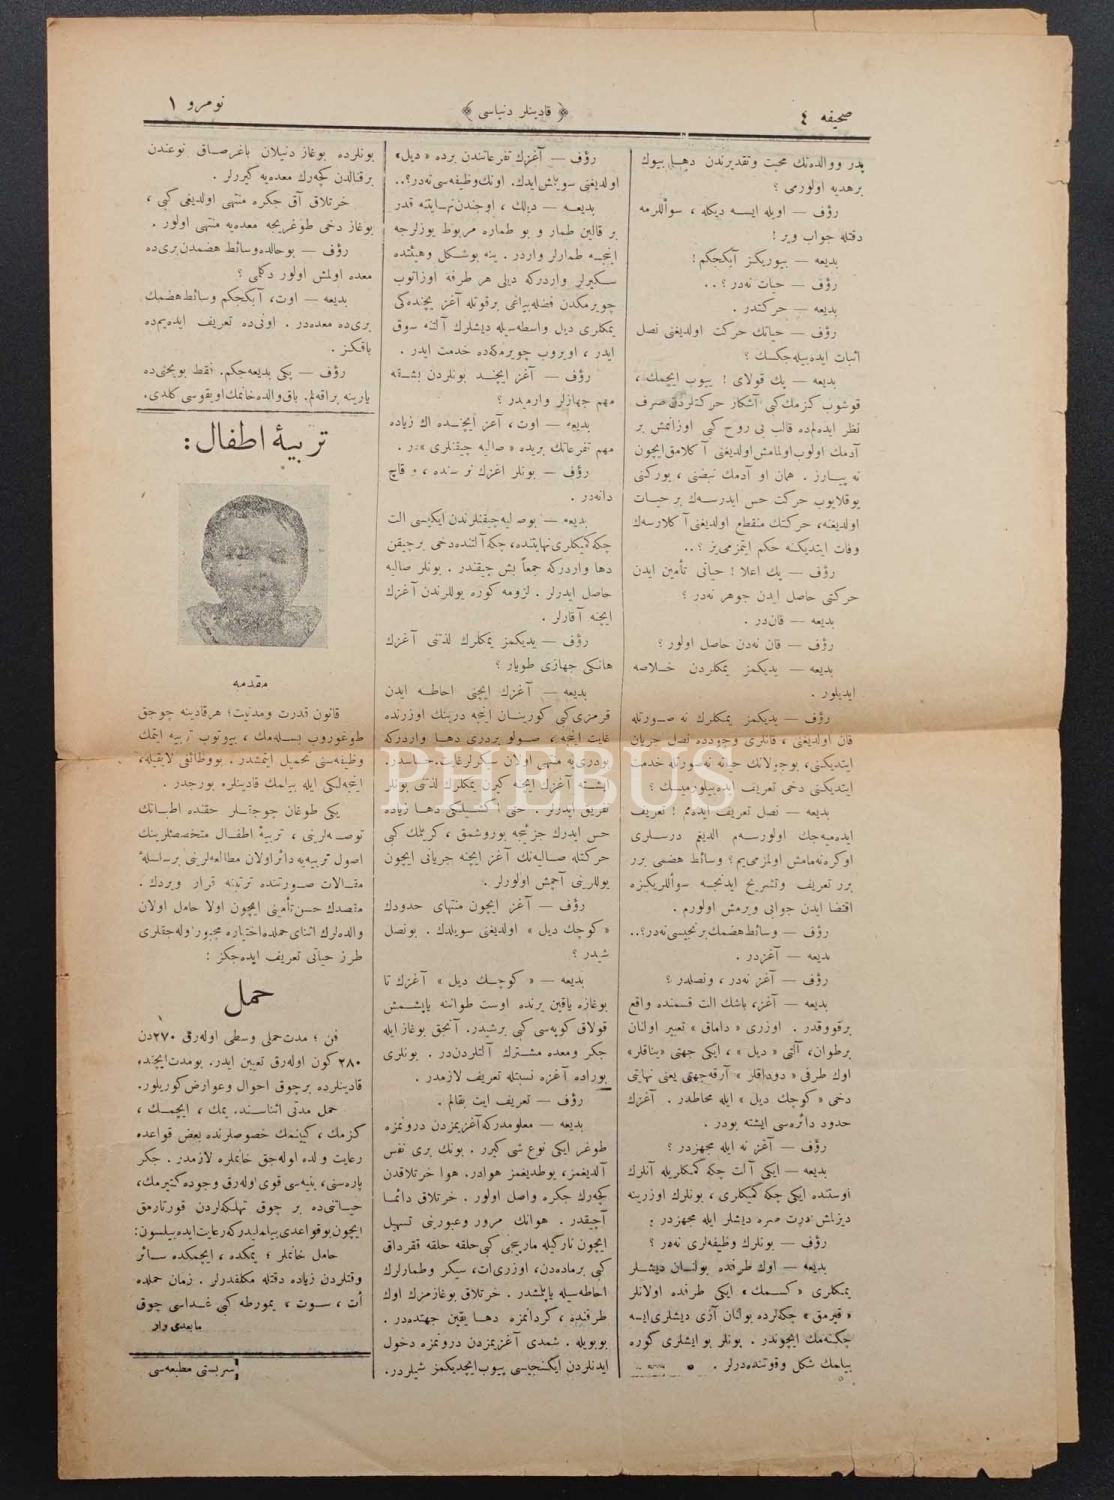 صحیفه ٤
﴿ قادینلر دنیاسی ﴾
نومرو ١
پدر ووالده‌نك محبت وتقدیرندن دها بیوك
برهدیه اولورمی ؟
رؤف — اویله ایسه دیكله ، سؤاللرمه
دقتله جواب ویر !
بدیعه — بیوریكز آبكجكم !
رؤف — حیات نه‌در ؟ . .
بدیعه — حركتدر .
رؤف — حیاتك حركت اولدیغنی نصل
اثبات ایده‌بیله‌جكسك ؟
بدیعه — پك قولای ! ییوب ایچمك ،
قوشوب كزمك كبی آشكار حركتلردن صرف
نظر ایده‌لم‌ده قالب بی روح كبی اوزانمش بر
آدمك اولوب اولمامش اولدیغنی آكلامق ایچون
نه یاپارز . همان او آدمك نبضنی ، یوركنی
یوقلایوب حركت حس ایدرسه‌ك بر حیات
اولدیغنه، حركتك منقطع اولدیغنی آكلارسه‌ك
وفات ایتدیكنه حكم ایتمزمی‌یز ؟ . .
رؤف — پك اعلا ! حیاتی تأمین ایدن
حركتی حاصل ایدن جوهر نه‌در ؟
بدیعه — قان‌در .
رؤف — قان نه‌دن حاصل اولور ؟
بدیعه — یدیكمز یمكلردن خلاصه
ایدیلور .
رؤف — یدیكمز یمكلرك نه صورتله
قان اولدیغنی ، قانلری وجودده نصل جریان
ایتدیكنی، بوجولانك حیاته نه‌صورتله خدمت
ایتدیكنی دخی تعریف ایده‌بیلورمیسك ؟
بدیعه — نصل تعریف ایده‌مم ! تعریف
ایده‌میه‌جك اولورسه‌م الدیغم درسلری
اوكره‌نه‌مامش اولمزمی‌یم ؟ وسائط هضمی برر
برر تعریف وتشریح ایدنجه سؤاللریكزه
اقتضا ایدن جوابی ویرمش اولورم .
رؤف — وسائط هضمك برنجیسی نه‌در؟..
بدیعه — آغزدر .
رؤف — آغز نه‌در ، ونصلدر ؟
بدیعه — آغز، باشك الت قسمنده واقع
برقووقدر . اوزری « داماق » تعبیر اولنان
برطوان، آلتی « دیل » ، ایكی جهتی «یناقلر»
اوك طرفی « دوداقلر » آرقه‌جهتی یعنی نهایتی
دخی « كوچك دیل » ایله محاطدر . آغزك
حدود دائره‌سی ایشته بودر .
رؤف — آغز نه ایله مجهزدر ؟
بدیعه — ایكی آلت چكه كمكلریله آنلرك
اوستنده ایكی چكه كمیكلری ، بونلرك اوزرینه
دیزلمش درت صره دیشلر ایله مجهزدر .
رؤف — بونلرك وظیفه‌لری نه‌در ؟
بدیعه — اوك طرفده بولنان دیشلر
یمكلری « كسمك » ایكی طرفده اولانلر
« قیرمق » چكه‌لرده بولنان آزی دیشلری‌ایسه
چكنه‌مك ایچوندر . بونلر بو ایشلری كوره
بیلمك شكل وقوتنده‌درلر .
رؤف — آغزك تفرعاتندن برده « دیل»
اولدیغنی سویلمش ایدك. اونك وظیفه‌سی نه‌در؟..
بدیعه — دیلك ، اوجندن نهایتنه قدر
بر قالین طمار و بو طماره مربوط یوزلرجه
اینجه طمارلر واردر . ینه بوشكل وهیئتده
سكیرلر واردركه دیلی هر طرفه اوزاتوب
چویرمكدن فضله‌یاغی برقوتله آغز یچنده‌كی
یمكلری دیل واسطه‌سیله دیشلرك آلتنه سوق
ایدر ، اویروب چویرمكده خدمت ایدر .
رؤف — آغز ایچنده بونلردن بشقه
مهم جهازلر وارمیدر ؟
بدیعه — اوت ، آغز ایچنده اك زیاده
مهم تفرعاتك بریده « صالیه چیقنلری »در .
رؤف — بونلر اغزك نره سنده ، و قاچ
دانه‌در .
بدیعه — بوصالیه‌چیقنلرندن ایكیسی الت
چكه‌كمیكلری نهایتنده، چكه‌آلتنده‌دخی برچیقن
دها واردركه جمعاً بش چیقندر . بونلر صالیه
حاصل ایدرلر . لزومه كوره یوللرندن آغزك
ایچنه آقارلر .
رؤف — یدیكمز یمكلرك لذتنی آغزك
هانكی جهازی طویار ؟
بدیعه — آغزك ایچنی احاطه ایدن
قرمزی‌كبی كورینان اینجه درینك اوزرنده
غایت اینجه ، صولو بردری دها واردركه
بودری‌یه منتهی اولان سكرلرغایت حساسدر.
ایشته آغزك ایچنه كیرن یمكلرك لذتنی بونلر
تفریق ایدرلر . حتی اكشیلكی دها زیاده
حس ایدرك جزئیجه بوروشمق ، كریلمك كبی
حركتله صالیه‌نك آغز ایچنه جریانی ایچون
یوللرینی آچمش اولورلر .
رؤف — آغز ایچون منتهای حدودك
« كوچك دیل » اولدیغنی سویلدك . بونصل
شیدر ؟
بدیعه — « كوچك دیل » آغزك تا
بوغازه یاقین یرنده اوست طواننه یاپشمش
قولاق كوپه‌سی كبی برشیدر. آنجق بوغاز ایله
جكر ومعده مشترك آلتلردن‌در . بونلری
بوراده آغزه نسبتله تعریف لازمدر .
رؤف — تعریف ایت بقالم .
بدیعه — معلومدركه‌آغزیمزدن درونمزه
طوغر ایكی نوع شی كیرر . بونك بری نفس
آلدیغمز، یوطدیغمز هوادر. هوا خرتلاقدن
كچه‌رك جكره واصل اولور . خرتلاق دائما
آچیقدر . هوانك مرور وعبورینی تسهیل
ایچون نارگیله مارپیجی كبی‌حلقه حلقه ققرداق
كبی برماده‌دن، اوزری‌ات، سیكر وطمارلرك
احاطه‌سیله یاپلشدر . خرتلاق بوغازمزك اوك
طرفنده ، كردانمزه دها یقین جهتده‌در .
بوبویله . شمدی آغزیمزدن درونمزه دخول
ایدنلردن ایكنجیسی ییوب ایچدیكمز شیلردر.
بونلرده بوغاز دنیلان باغرصاق نوعندن
برقنالدن كچه‌رك معده‌یه كیررلر .
خرتلاق آق جكره منتهی اولدیغی كبی ،
بوغاز دخی طوغریجه معده‌یه منتهی اولور .
رؤف — بوحالده‌وسائط هضمدن بری‌ده
معده اولمش اولور دكلمی ؟
بدیعه — اوت، آبكجكم وسائط هضمك
بری‌ده معده‌در . اونی‌ده تعریف ایده‌یم‌ده
باقكز .
رؤف — پكی بدیعه‌جكم. فقط بوبحثی‌ده
یارینه براقه‌لم. باق‌والده‌خانمك اویقوسی كلدی.
تربیهٔ اطفال :
مقدمه
قانون قدرت ومدنیت؛ هرقادینه چوجق
طوغوروب بسله‌مك ، بیوتوب تربیه ایتمك
وظیفه‌سنی تحمیل ایتمشدر. بووظائفی لایقیله،
اینجه‌لكی ایله بیلمك قادینلره بورجدر.
یكی طوغان چوجقلر حقنده اطبانك
توصیه‌لرینی ، تربیهٔ اطفال متخصصلرینك
اصول تربیه‌یه دائراولان مطالعه‌لرینی برسلسلهٔ
مقالات صورتنده ترتیبه قرار ویردك .
مقصدك حسن‌تأمینی ایچون اولا حامل اولان
والده‌لرك اثنای حمله‌ده‌اختیاره مجبوراوله‌جقلری
طرز حیاتی تعریف ایده‌جكز :
حمل
فن ؛ مدت‌حملی وسطی اوله‌رق ٢٧٠دن
٢٨٠ كون اوله‌رق تعیین ایدر. بومدت‌ایچنده
قادینلرده برچوق احوال وعوارض كوریلور.
حمل مدتی اثناسنده. یمك ، ایچمك ،
كزمك ، كیینمك خصوصلرنده بعض قواعده
رعایت والده اوله‌جق خانملره لازمدر . جكر
پاره‌سنی، بنیه‌سی قوی اوله‌رق وجوده كتیرمك،
حیاتنی‌ده بر چوق تهلكه‌لردن قورتارمق
ایچون بوقواعدی بیلملیدركه رعایت ایده‌بیلسون:
حامل خانملر ؛ یمكده ، ایچمكده سائر
وقتلردن زیاده دقتله مكلفدرلر . زمان حمله‌ده
أت ، سوت ، یمورطه كبی غداسی چوق
مابعدی وار
سربستی مطبعه‌سی
PHEBUS